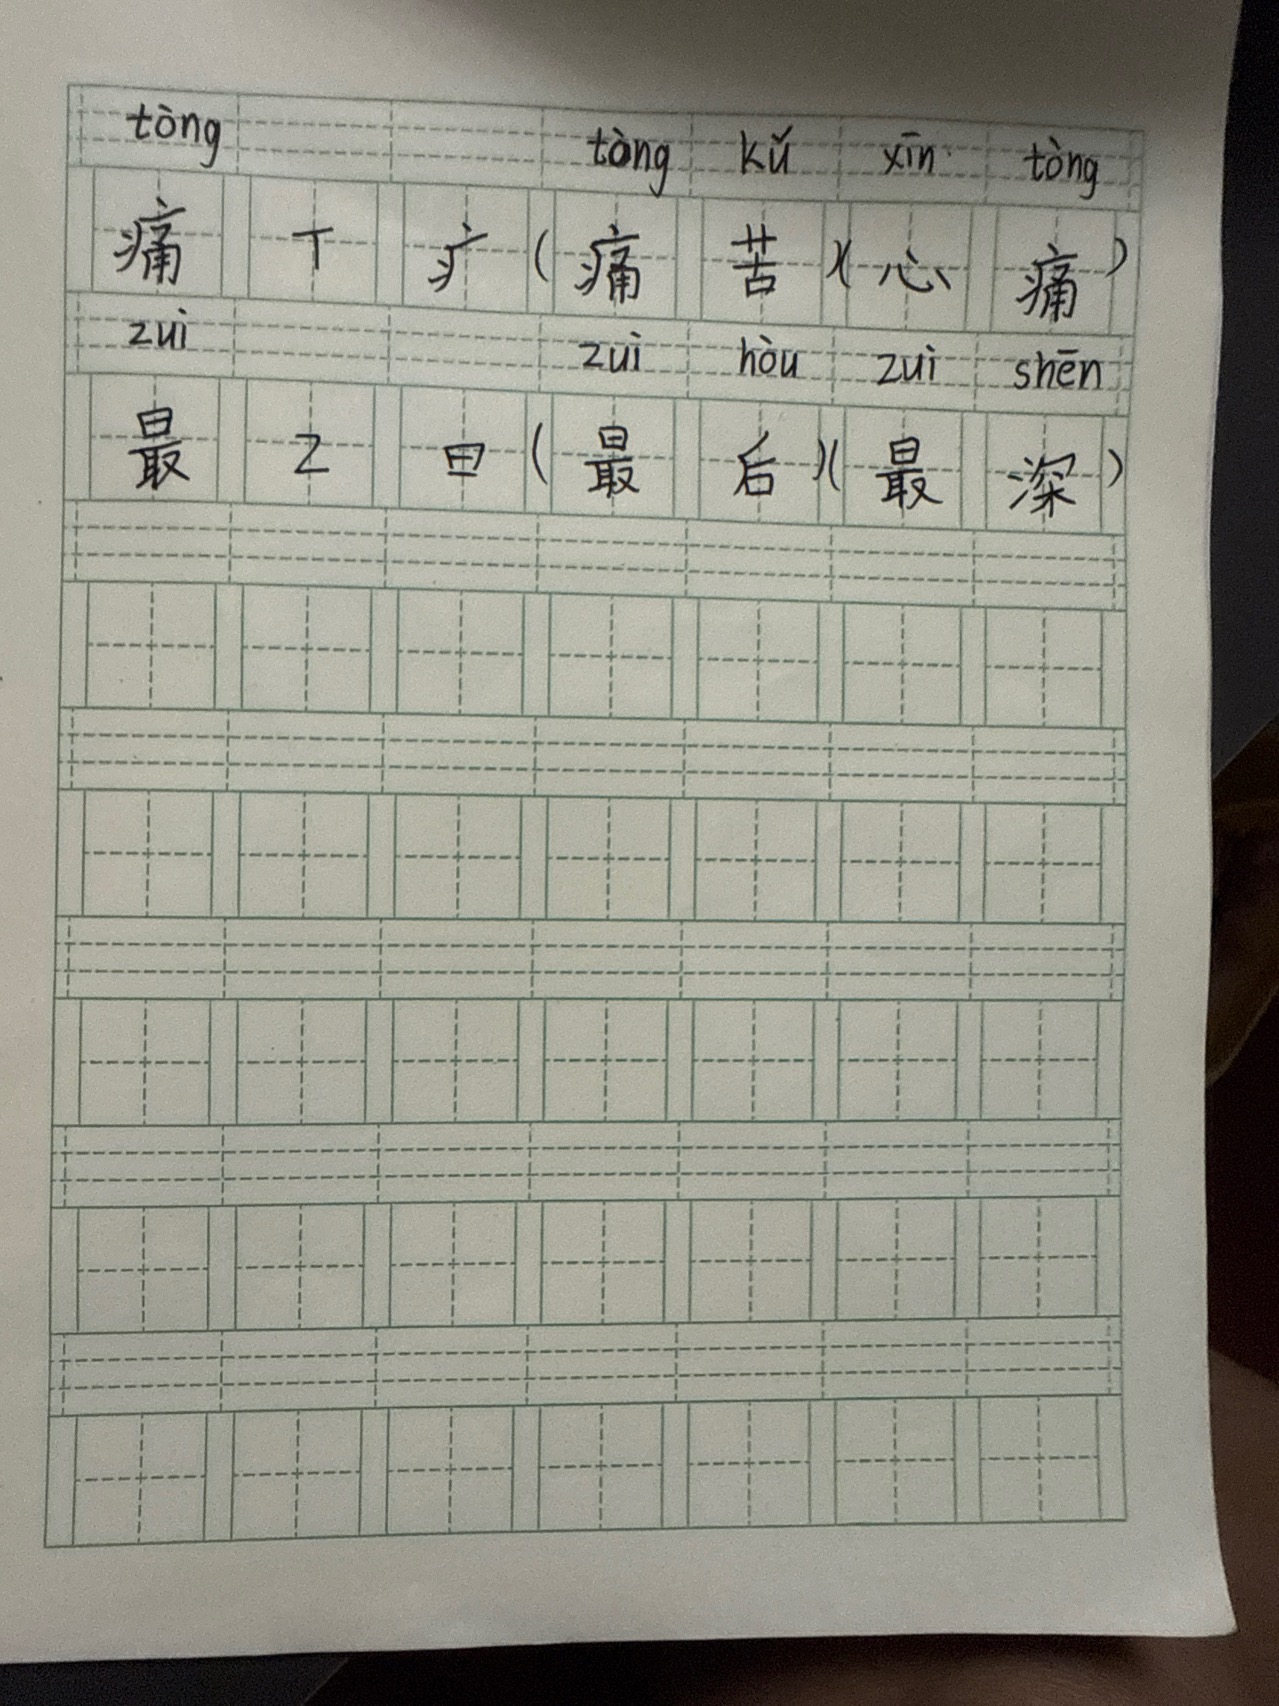 tòng tòng kǔ xīn tòng
痛 丅 疒 (痛 苦)(心 痛)
zuì zuì hòu zuì shēn
最 Z 曰 (最 后)(最 深)